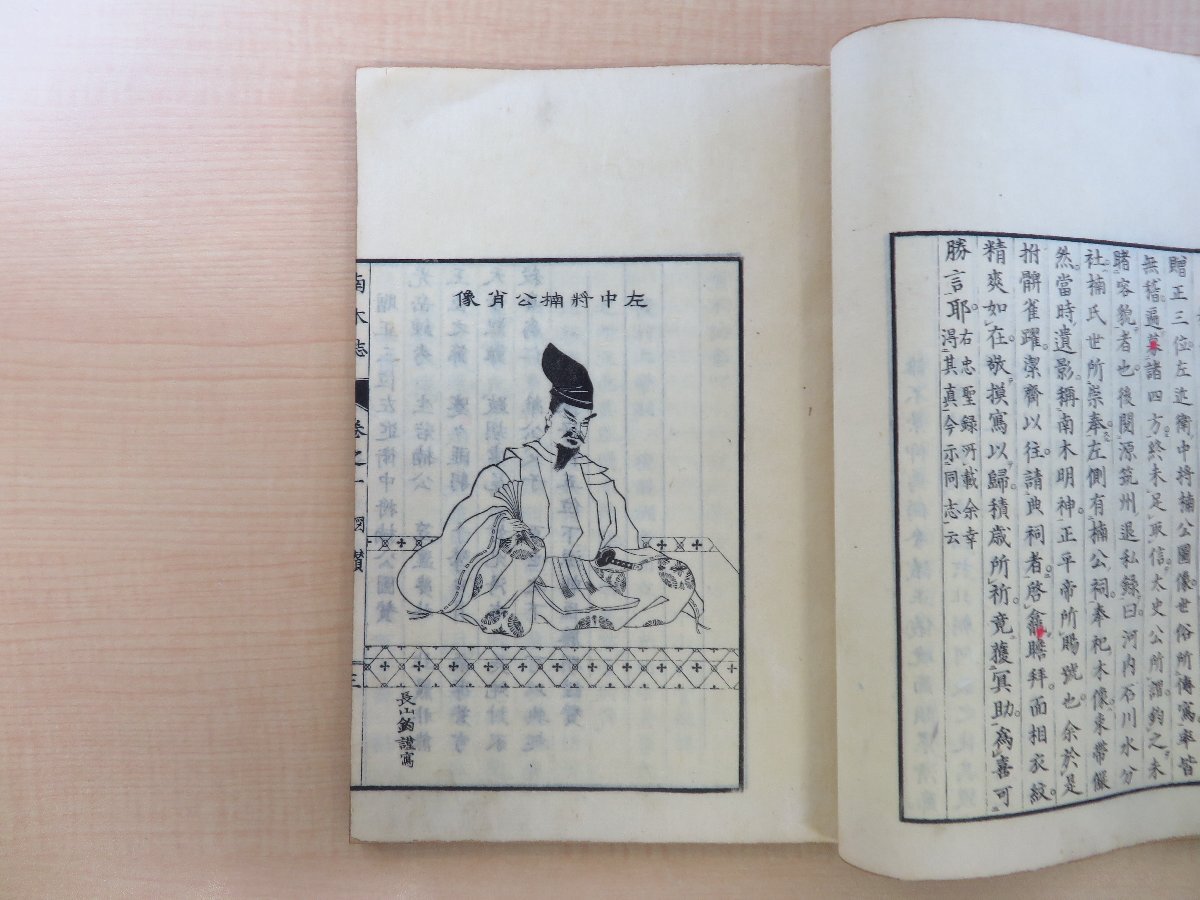 贈正三位左近衞中將楠公圖像世俗所傳寫率皆
無稽遍蒐諸四方終未足取信太史公所謂鈞之未
睹容貌者也後閱源筑州退私録曰河内石川水分
社楠氏世所崇奉左側有楠公祠奉祀木像束帶儼
然當時遺影稱南木明神正平帝所賜號也余於是
拊髀雀躍潔齋以往請典祠者啓龕瞻拜面相衣紋
精爽如在敬摸寫以歸積歲所祈竟獲冥助爲喜可
勝言耶
右忠聖録所載余幸
得其真今示同志云
左中將楠公肖像
長山鈞謹寫
南木誌
卷之一
三